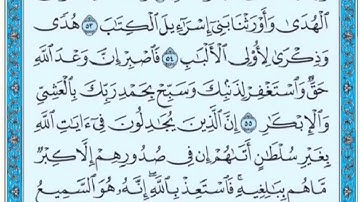 ٱلْهُدَىٰ وَأَوْرَثْنَا بَنِىٓ إِسْرَٰٓءِيلَ ٱلْكِتَٰبَ ٥٣ هُدًى
وَذِكْرَىٰ لِأُو۟لِى ٱلْأَلْبَٰبِ ٥٤ فَٱصْبِرْ إِنَّ وَعْدَ ٱللَّهِ
حَقٌّ وَٱسْتَغْفِرْ لِذَنۢبِكَ وَسَبِّحْ بِحَمْدِ رَبِّكَ بِٱلْعَشِىِّ
وَٱلْإِبْكَٰرِ ٥٥ إِنَّ ٱلَّذِينَ يُجَٰدِلُونَ فِىٓ ءَايَٰتِ ٱللَّهِ
بِغَيْرِ سُلْطَٰنٍ أَتَىٰهُمْ إِن فِى صُدُورِهِمْ إِلَّا كِبْرٌ
مَّا هُم بِبَٰلِغِيهِ ۚ فَٱسْتَعِذْ بِٱللَّهِ ۖ إِنَّهُۥ هُوَ ٱلسَّمِيعُ